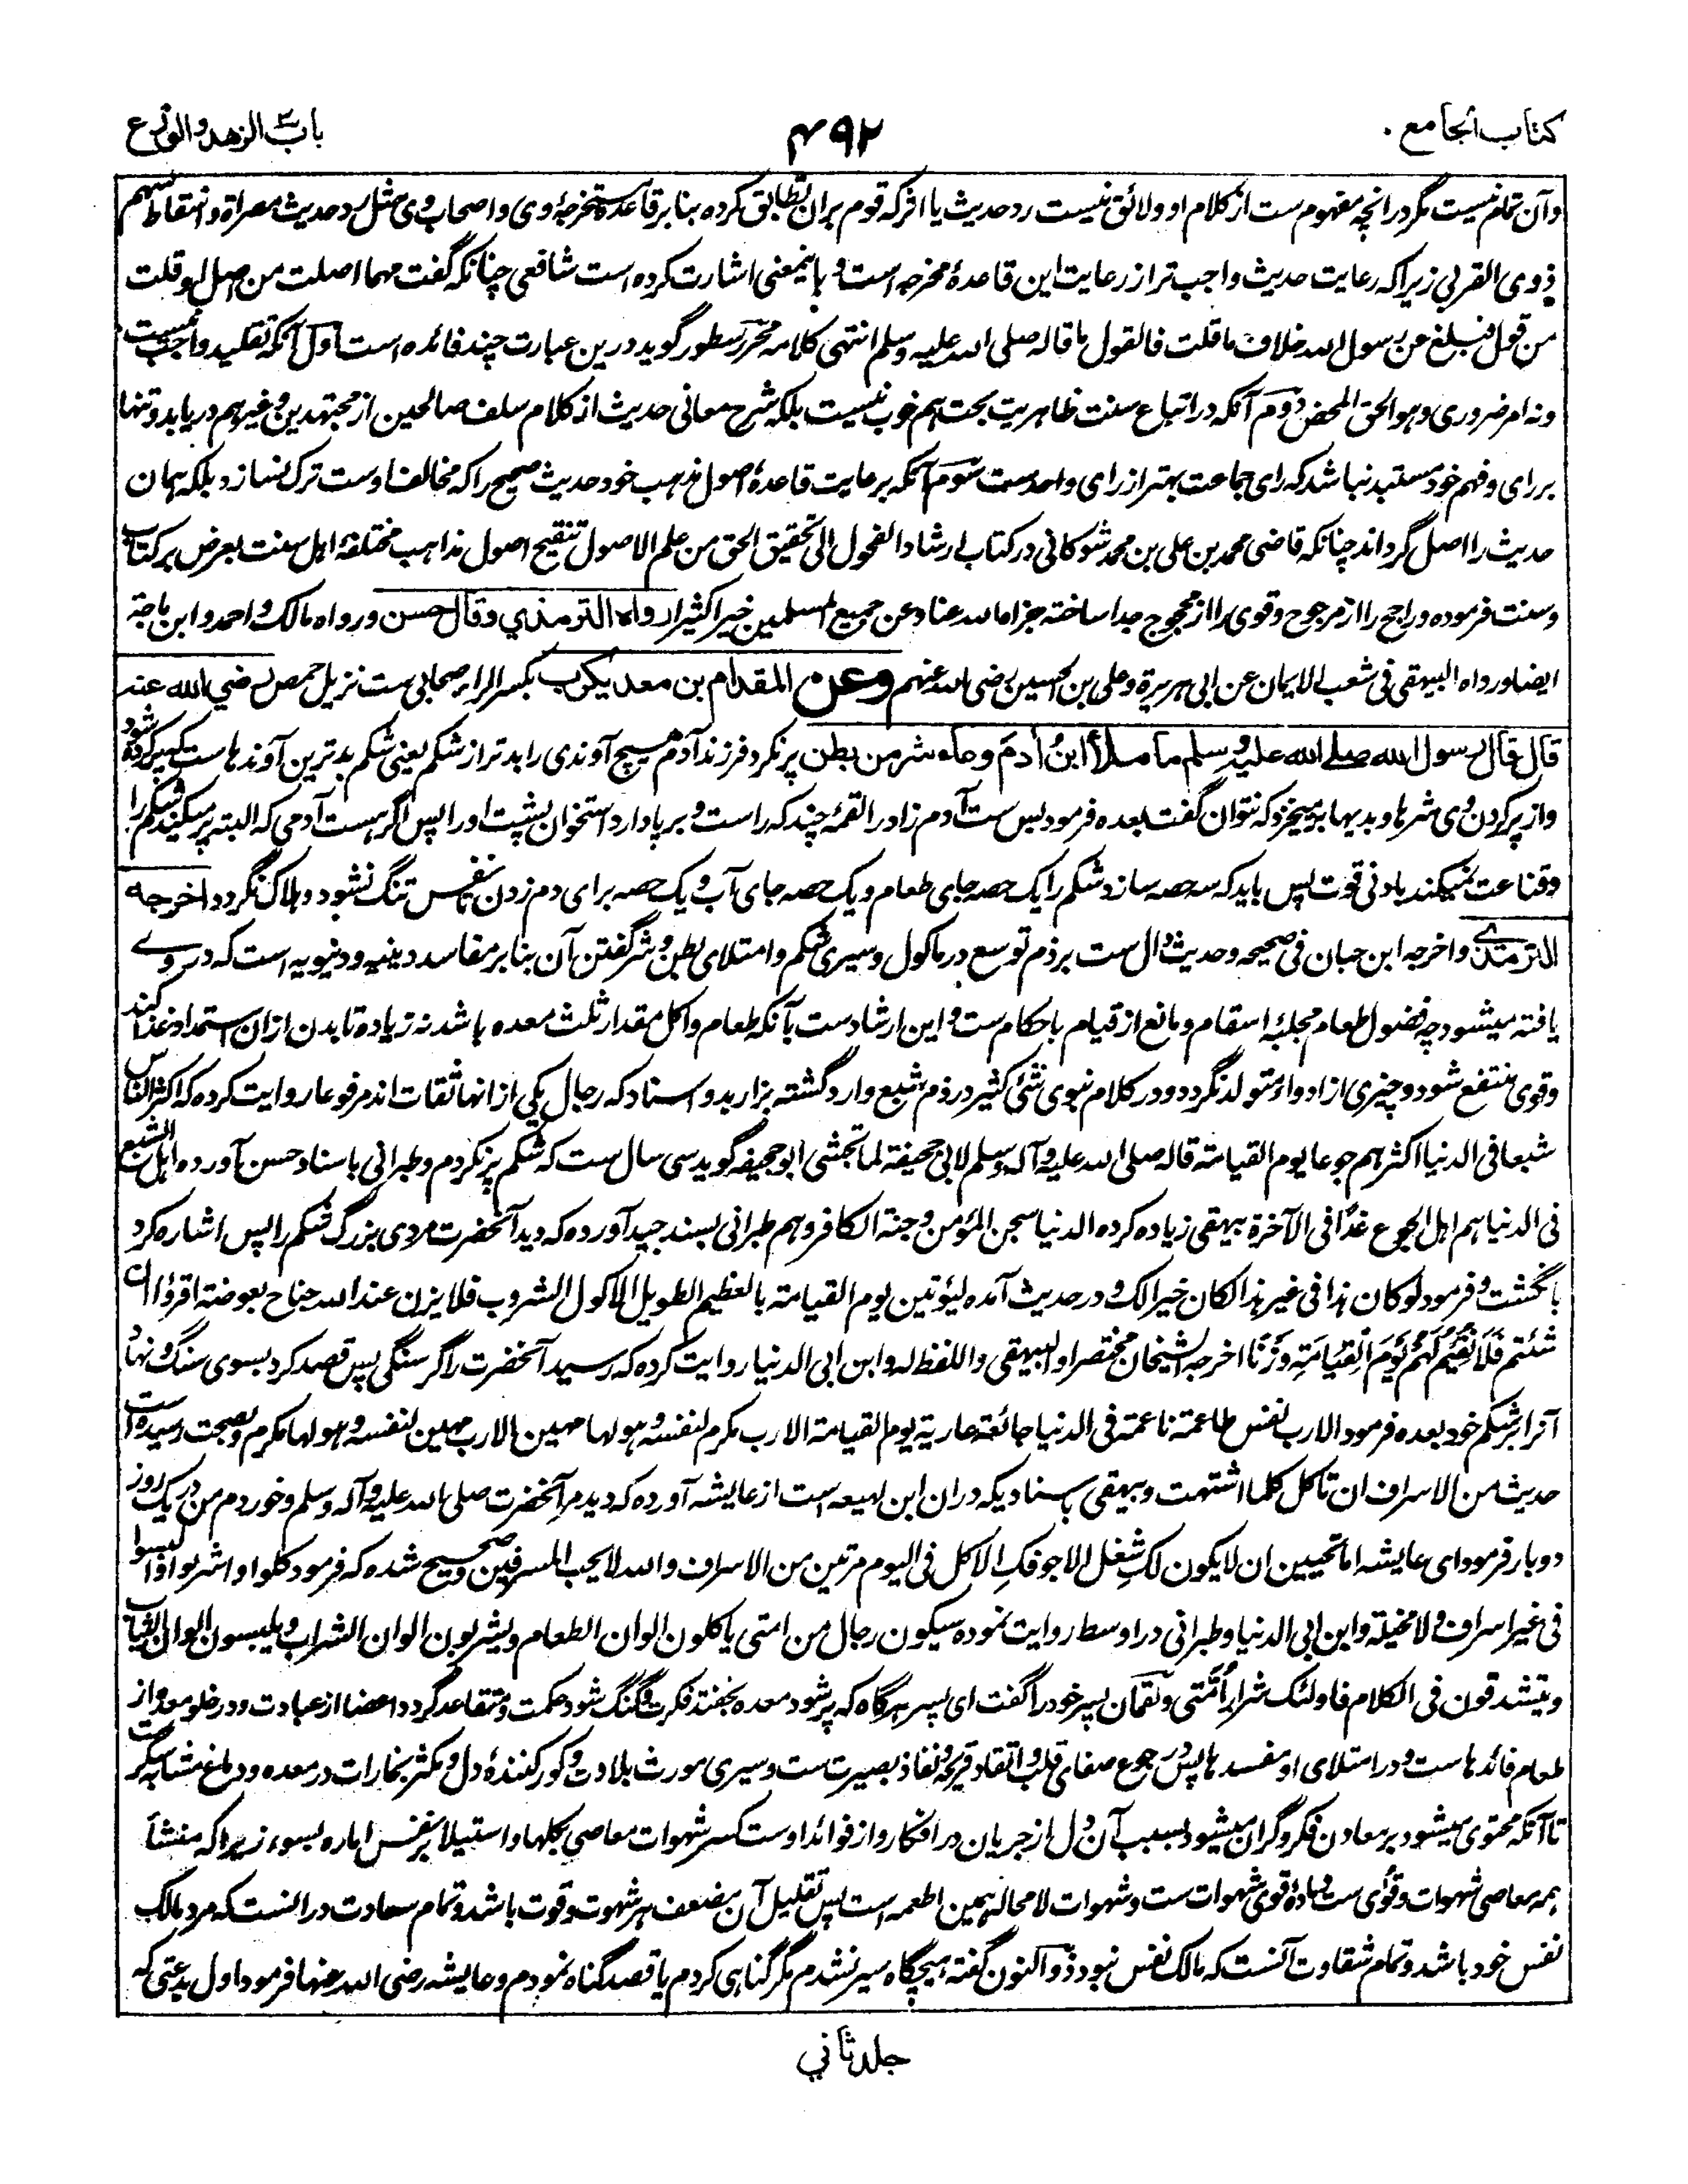 کتاب الجامع
۴۹۲
باب الزهد والورع
وآن تمام نیست مگر در انچه مفهوم ست از کلام او ولائق نیست رد حدیث یا اثر که قوم بران تطابق کرده بنا بر قاعده مستخرجه وی واصحاب وی مثل رد حدیث مصراة واسقاط سهم
ذوی القربی زیراکه رعایت حدیث واجب تر از رعایت این قاعدهٔ مخرجه است وباینمعنی اشارت کرده است شافعی چنانکه گفت مهما اصلت من اصل او قلت
من قول فبلغ عن رسول الله خلاف ما قلت فالقول ما قاله صلی الله علیه وسلم انتهی کلامه محرر سطور گوید درین عبارت چند فائده است اول آنکه تقلید واجب نیست
ونه امر ضروری وهو الحق المحض دوم آنکه در اتباع سنت ظاهریت بحت هم خوب نیست بلکه شرح معانی حدیث از کلام سلف صالحین از مجتهدین وغیرهم دریابد وتنها
بر رای وفهم خود مستبد نباشد که رای جماعت بهتر از رای واحدست سوم آنکه برعایت قاعدهٔ اصول مذهب خود حدیث صحیح را که مخالف اوست ترک نسازد بلکه همان
حدیث را اصل گرداند چنانکه قاضی محمد بن علی بن محمد شوکانی در کتاب ارشاد الفحول الی تحقیق الحق من علم الاصول تنقیح اصول مذاهب مختلفهٔ اهل سنت بعرض بر کتاب
وسنت فرموده وراجح را از مرجوح وقوی را از محجوج جدا ساخته جزاه الله عنا وعن جمیع المسلمین خیرا کثیرا رواه الترمذي وقال حسن ورواه مالک واحمد وابن ماجة
ایضا ورواه البیهقی فی شعب الایمان عن ابی هریرة وعلی بن الحسین رضی الله عنهم وعن المقدام بن معدیکرب بکسر الراء صحابی ست نزیل حمص رضي الله عنه
قال قال رسول الله صلے الله علیه وسلم ما ملأ ابن أدم وعاء شر من بطن پر نکرد فرزند آدم هیچ آوندی را بدتر از شکم یعنی شکم بدترین آوندهاست که پر کرده شود
واز پر کردن وی شرها وبدیها برمیخیزد که نتوان گفت بعده فرمود بس ست آدم زاد را لقمهٔ چند که راست وبرپا دارد استخوان پشت او را پس اگر هست آدمی که البته پر میکند شکم را
وقناعت نمیکند بادنی قوت پس باید که سه حصه سازد شکم را یک حصه جای طعام ویک حصه جای آب ویک حصه برای دم زدن تا نفس تنگ نشود وهلاک نگردد اخرجه
الترمذے واخرجه ابن حبان فی صحیحه وحدیث دال ست بر ذم توسع در ماکول وسیری شکم وامتلای بطن وشر گفتن آن بنا بر مفاسد دینیه ودنیویه است که در وے
یافته میشود چه فضول طعام مجلبهٔ اسقام ومانع از قیام باحکام ست واین ارشادست بآنکه طعام واکل مقدار ثلث معده باشد نه زیاده تا بدن ازان استمداد غذا کند
وقوی منتفع شود وچیزی از ادواء متولد نگردد ودر کلام نبوی شئ کثیر در ذم شبع وارد گشته بزار بدو اسناد که رجال یکی از انها ثقات اند مرفوعا روایت کرده که اکثر الناس
شبعا فی الدنیا اکثرهم جوعا یوم القیامة قاله صلی الله علیه وآله وسلم لابی جحیفة لما تجشی ابوجحیفه گوید سی سال ست که شکم پر نکردم وطبرانی باسناد حسن آورده اهل الشبع
فی الدنیا هم اهل الجوع غدًا فی الآخرة بیهقی زیاده کرده الدنیا سجن المؤمن وجنة الکافر وهم طبرانی بسند جید آورده که دید آنحضرت مردی بزرگ شکم را پس اشاره کرد
بانگشت وفرمود لو کان هذا فی غیر هذا لکان خیرا لک ودر حدیث آمده لیؤتین یوم القیامة بالعظیم الطویل الاکول الشروب فلا یزن عند الله جناح بعوضة اقرؤا ان
شئتم فَلَا نُقِیْمُ لَهُمْ یَوْمَ الْقِیَامَةِ وَزْنًا اخرجه الشیخان مختصرا والبیهقی واللفظ له وابن ابی الدنیا روایت کرده که رسید آنحضرت را گرسنگی پس قصد کرد بسوی سنگ ونهاد
آنرا بر شکم خود بعده فرمود الا رب نفس طاعمة ناعمة فی الدنیا جائعة عاریة یوم القیامة الا رب مکرم لنفسه وهو لها مهین الا رب مهین لنفسه وهو لها مکرم وبصحت رسیده است
حدیث من الاسراف ان تاکل کلما اشتهت وبیهقی باسنادیکه دران ابن لهیعه است از عایشه آورده که دید مرا آنحضرت صلی الله علیه وآله وسلم وخوردم من در یک روز
دو بار فرمود ای عایشه اما تحبین ان لا یکون لکِ شغل الا جوفکِ الاکل فی الیوم مرتین من الاسراف والله لا یحب المسرفین وصحیح شده که فرمود کلوا واشربوا والبسوا
فی غیر اسراف ولا مخیلة وابن ابی الدنیا وطبرانی در اوسط روایت نموده سیکون رجال من امتی یاکلون الوان الطعام ویشربون الوان الشراب ویلبسون الوان الثیاب
ویتشدقون فی الکلام فاولئک شرار اُمّتی ولقمان پسر خود را گفت ای پسر هرگاه که پر شود معده بخفتد فکرت وگنگ شود حکمت ومتقاعد گردد اعضا از عبادت ودر خلو معده از
طعام فائدهاست ودر امتلای او مفسدها پس در جوع صفای قلب واتقاد قریحه ونفاذ بصیرت ست وسیری مورث بلادت وکور کنندهٔ دل ومکثر بخارات در معده ودماغ مشابه سکرت
تا آنکه محتوی میشود بر معادن فکر وگران میشود بسبب آن دل از جریان در افکار واز فوائد اوست کسر شهوات معاصی کلها واستیلا بر نفس اماره بسوء زیرا که منشأ
همه معاصی شهوات وقوای ست ومادهٔ قوی شهوات ست وشهوات لا محاله همین اطعمه است پس تقلیل آن مضعف هر شهوت وقوت باشد وتمام سعادت در انست که مرد مالک
نفس خود باشد وتمام شقاوت آنست که مالک نفس نبود ذو النون گفته هیچگاه سیر نشدم مگر گناهی کردم یا قصد گناه نمودم وعایشه رضی الله عنها فرمود اول بدعتی که
جلد ثاني